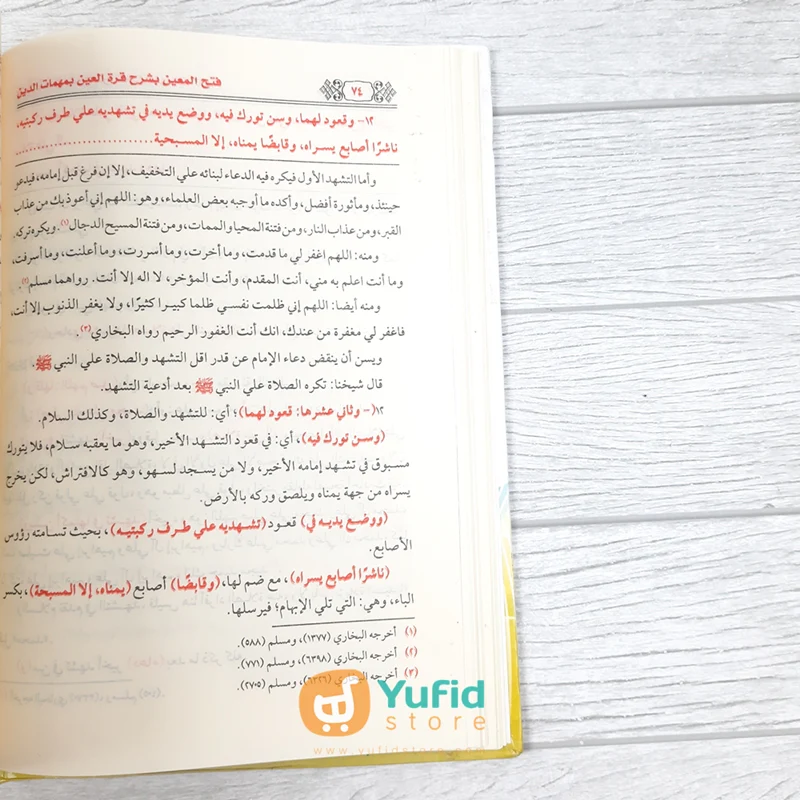 فتح المعين بشرح قرة العين بمهمات الدين
٧٤
١٢- وقعود لهما، وسن تورك فيه، ووضع يديه في تشهديه علي طرف ركبتيه،
ناشرًا أصابع يسراه، وقابضًا يمناه، إلا المسبحية.............................
وأما التشهد الأول فيكره فيه الدعاء لبنائه علي التخفيف، إلا إن فرغ قبل إمامه، فيدعو
حينئذ، ومأثورة أفضل، وأكده ما أوجبه بعض العلماء، وهو: اللهم إني أعوذ بك من عذاب
القبر، ومن عذاب النار، ومن فتنة المحيا والممات، ومن فتنة المسيح الدجال(١). ويكره تركه.
ومنه: اللهم اغفر لي ما قدمت، وما أخرت، وما أسررت، وما أعلنت، وما أسرفت،
وما أنت اعلم به مني، أنت المقدم، وأنت المؤخر، لا اله إلا أنت. رواهما مسلم(٢).
ومنه أيضا: اللهم إني ظلمت نفسي ظلما كبيرا كثيرًا، ولا يغفر الذنوب إلا أنت،
فاغفر لي مغفرة من عندك، انك أنت الغفور الرحيم رواه البخاري(٣).
ويسن أن ينقض دعاء الإمام عن قدر اقل التشهد والصلاة علي النبي ﷺ.
قال شيخنا: تكره الصلاة علي النبي ﷺ بعد أدعية التشهد.
١٢(- وثاني عشرها: قعود لهما)؛ أي: للتشهد والصلاة، وكذلك السلام.
(وسن تورك فيه)، أي: في قعود التشهد الأخير، وهو ما يعقبه سلام، فلا يتورك
مسبوق في تشهد إمامه الأخير، ولا من يسجد لسهو، وهو كالافتراش، لكن يخرج
يسراه من جهة يمناه ويلصق وركه بالأرض.
(ووضع يديه في) قعود (تشهديه علي طرف ركبتيه)، بحيث تسامته رؤوس
الأصابع.
(ناشرًا أصابع يسراه)، مع ضم لها، (وقابضًا) أصابع (يمناه، إلا المسبحة)، بكسر
الباء، وهي: التي تلي الإبهام؛ فيرسلها.
(١) أخرجه البخاري (١٣٧٧)، ومسلم (٥٨٨).
(٢) أخرجه البخاري (٦٣٩٨)، ومسلم (٧٧١).
(٣) أخرجه البخاري (٦٣٢٦)، ومسلم (٢٧٠٥).
Yufid
store
www.yufidstore.com